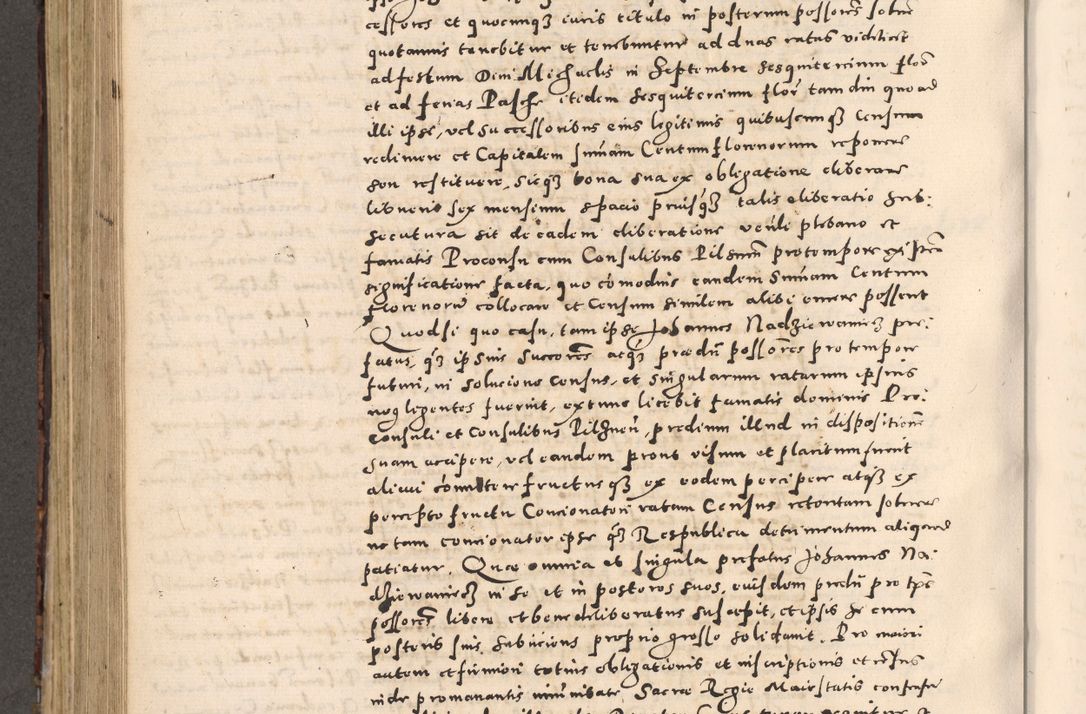 cessores et quocunq3 iuris titulo in posterum possores solue
quotannis tenebitur et tenebuntur ad duas ratas videlicet
ad festum Divi Michaelis in Septembre sesquitercium flor
et ad ferias Pasche itidem sesquitercium flor tam diu quo ad
illi ipse, vel successoribus eius legitimis quibuscunq3 Censum
redimere et Capitalem sum̄am Centum florenorum reponere
seu restituere, sicq3 bona sua ex obligatione eliberare
libuerit sex mensium spacio priusq3 talis eliberatio sub:
secutura sit de eadem eliberatione ven̄li plebano et
famatis Proconsu cum Consulibus Pilsnen̄ pro tempore
significatione facta, quo com̄odius eandem Sum̄am Centum
florenorum collocare et Censum similem alibi emere possent
Quodsi quo casu, tam ipse Johannes Nadziewaniecz pre:
fatus, q3 ipsius succores atq3 predij possores pro tempore
futuri, in solucione Census, et singularum ratarum ipsius
negligentes fuerint, extunc licebit famatis dominis Pro:
consuli et Consulibus Pilznen̄, predium illud in dispositionem
suam accipere, vel eandem prout visum et placitum fuerit
alicui com̄ittere fructusq3 ex eodem percipere atq3 ex
percepto fructu Concionatori ratam Census retentam soluere
ne tam concionator ipse q3 Respublica detrimentum aliquod
patiatur. Quae omnia et singula prefatus Johannes Na:
dziewaniecz in se et in posteros suos, eiusdem predij pro tpe
possores libere et bene deliberatus suscepit, et ipsis se cum
posteris suis subiiciens proprio grosso solidauit. Pro maiori
autem et firmiori totius obligationis et inscriptionis et
inde promanantis im̄unitate Sacrae Regie Maiestatis consensu